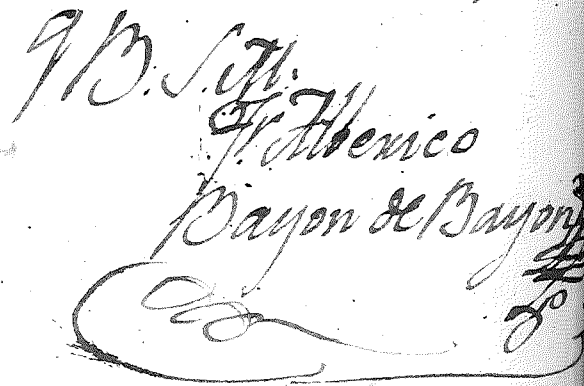 q B. S. M.
Fr. Alberico
Bayon de Bayon